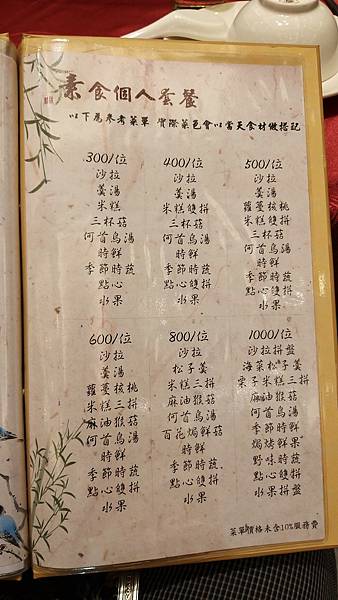 素食個人套餐
以下為參考菜單 實際菜色會以當天食材做搭配
300/位
沙拉
羹湯
米糕
三杯菇
何首烏湯
時鮮
季節時蔬
點心
水果
400/位
沙拉
羹湯
米糕雙拼
三杯菇
何首烏湯
時鮮
季節時蔬
點心雙拼
水果
500/位
沙拉
羹湯
蘿蔓核桃
米糕雙拼
三杯菇
何首烏湯
時鮮
季節時蔬
點心雙拼
水果
600/位
沙拉
羹湯
蘿蔓核桃
米糕三拼
麻油猴菇
何首烏湯
時鮮
季節時蔬
點心雙拼
水果
800/位
沙拉
松子羹
米糕三拼
麻油猴菇
何首烏湯
百花焗鮮菇
時鮮
季節時蔬
點心雙拼
水果
1000/位
沙拉拼盤
海菜松子羹
栗子米糕三拼
麻油猴菇
何首烏湯
季節時鮮
焗烤鮮果
野味時蔬
點心雙拼
水果拼盤
菜單價格未含10%服務費